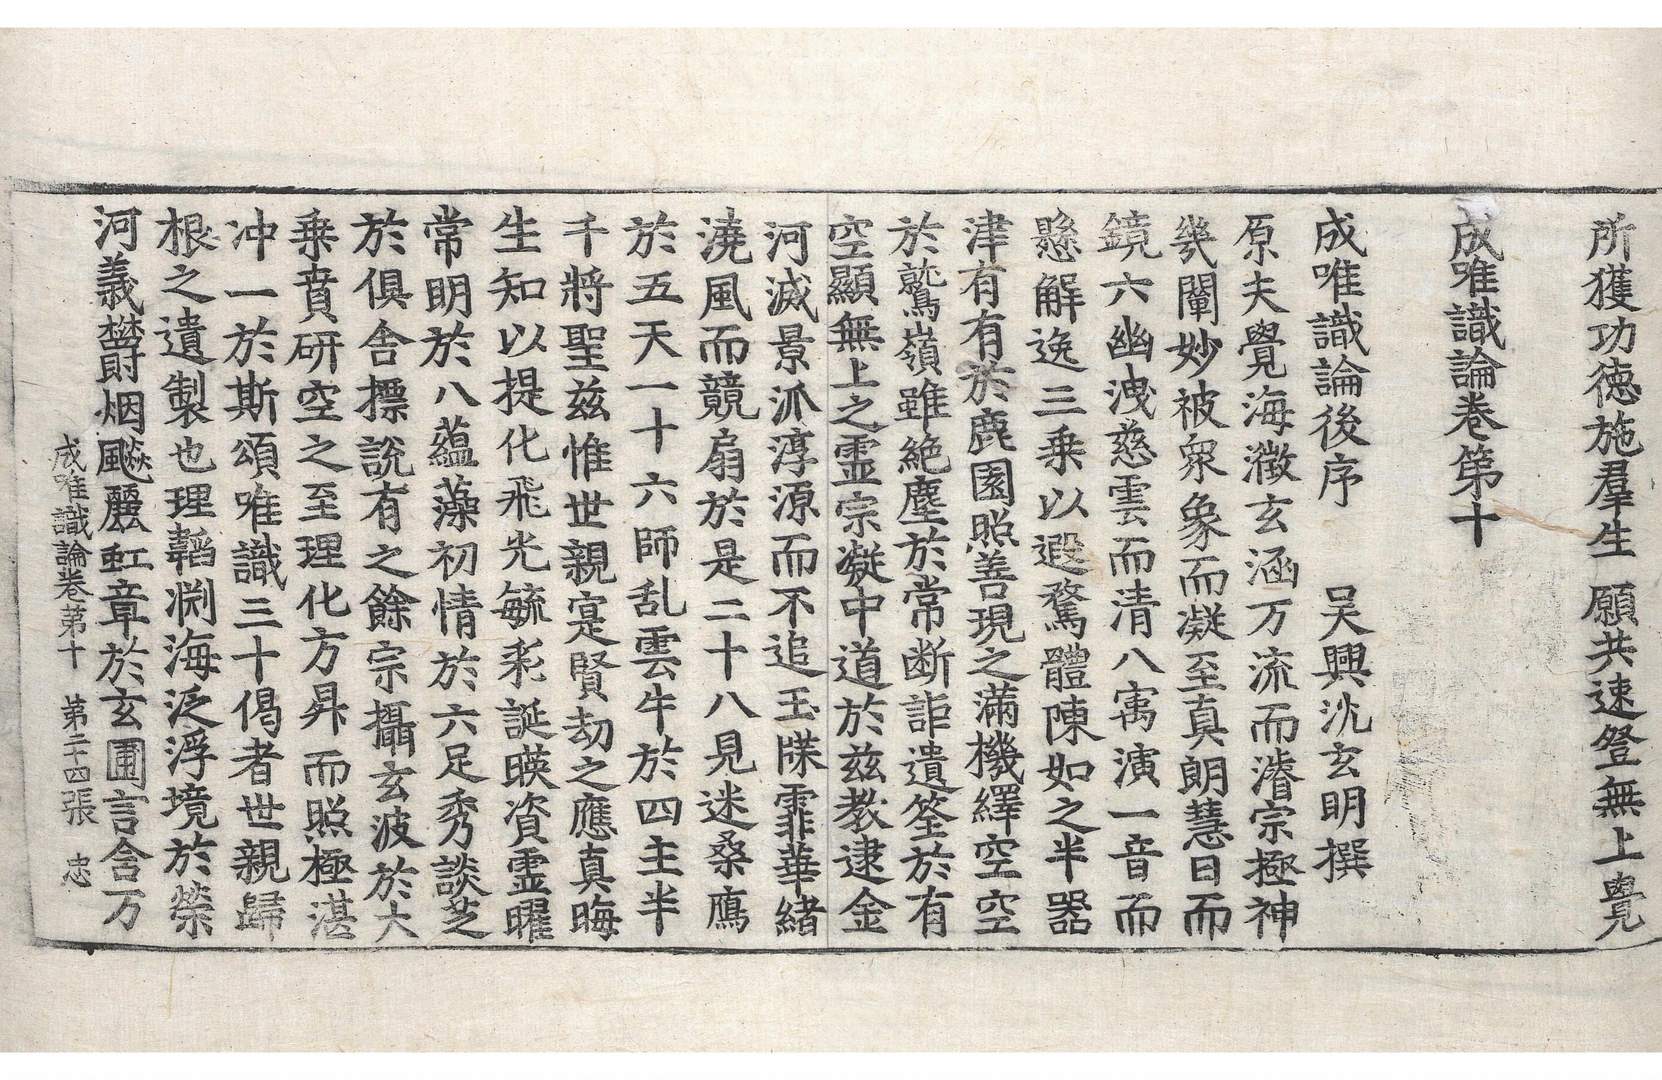 所獲功德施羣生 願共速登無上覺
成唯識論卷第十
成唯識論後序 吴興沈玄明撰
原夫覺海澂玄涵万流而濬宗極神
㡬闡妙被衆象而凝至真朗慧日而
鏡六幽洩慈雲而清八㝢演一音而
懸解逸三乗以遐騖體陳如之半器
津有有於鹿園照善現之滿機繹空空
於鷲嶺雖絶塵於常断詎遺筌於有
空顯無上之霊宗凝中道於兹教逮金
河滅景派淳源而不追玉牒霏華緒
澆風而競扇於是二十八見迷桑鴈
於五天一十六師乱雲牛於四主半
千將聖兹惟世親寔賢劫之應真晦
生知以提化飛光毓彩誕暎資霊曜
常明於八蘊藻初情於六足秀談芝
於俱舍摽說有之餘宗攝玄波於大
乗賁研空之至理化方昇而照極湛
沖一於斯頌唯識三十偈者世親歸
根之遺製也理韜渊海泛浮境於榮
河義欝烟飈麗虹章於玄圃言含万
成唯識論卷第十 第二十四張 忠